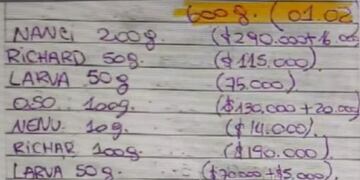 600g. (01.02
NANCI 200g. ($290.000+16.000
RICHARD 50g. ($115.000)
LARVA 50g (75.000)
OSO 100g. ($130.000+20.000)
NENU. 10g. ($14.000)
RICHAR 100g. ($190.000)
LARVA 50g. ($70000+$5.000)